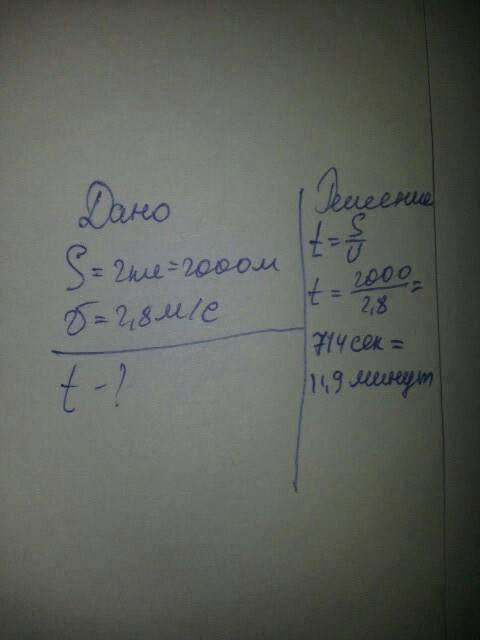 Дано
S = 2км = 2000м
υ = 2,8 м/с
t - ?
Решение
t = S/υ
t = 2000/2,8 =
714 сек =
11,9 минут